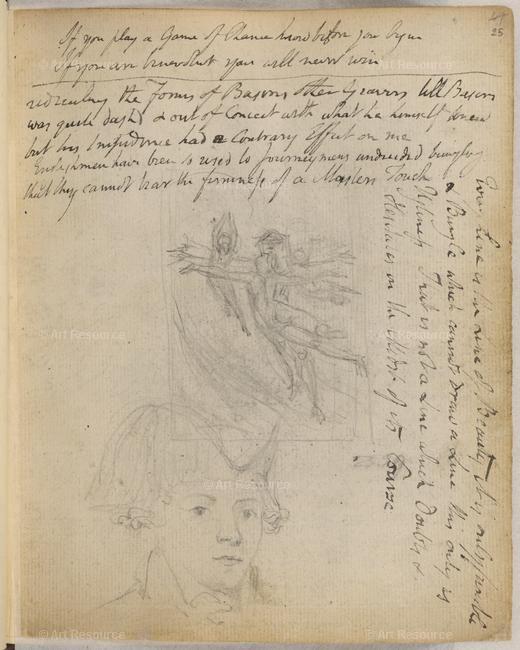 41
25
If you play a Game of Chance know before you begin
If you are benevolent you will never win
ridiculing the Forms of Basires other Gravers till Basire
was quite dashd & out of Conceit with what he himself knew
but his Impudence had a Contrary Effect on me
Englishmen have been so used to Journeymens undecided bungling
that they cannot bear the firmness of a Masters Touch
Every Line is the Line of Beauty it is only fumble
& Bungle which cannot draw a Line this only is
Ugliness That is not a Line which Doubts &
Hesitates in the Midst of its Course
© Art Resource
© Art Resource
© Art Resource
© Art Resource
© Art Resource
© Art Resource
© Art Resource
© Art Resource